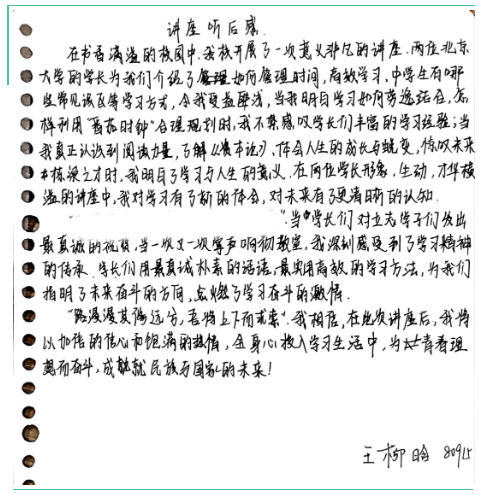 讲座听后感
在书香满溢的校园中,我校开展了一次意义非凡的讲座.两位北京
大学的学长为我们介绍了管理如何管理时间,高效学习,中学生有哪
些常见误区等学习方式,令我受益匪浅,当我明白学习如何劳逸结合,怎
样利用“番茄时钟”合理规划时,我不禁感叹学长们丰富的学习经验;当
我真正认识到阅读力量,了解《资本论》、体会人生的成长与蜕变,惊叹未来
栋梁之才时,我明白了学习与人生的意义.在两位学长形象,生动,才华横
溢的讲座中,我对学习有了新的体会,对未来有了更清晰的认知.
当学长们对立志学子们发出
最真诚的祝福,当一次又一次掌声响彻教室,我深刻感受到了学习精神
的传承.学长们用最真诚朴素的话语,最实用高效的学习方法,为我们
指明了未来奋斗的方向,点燃了学习奋斗的激情.
“路漫漫其修远兮,吾将上下而求索”.我相信,在此次讲座后,我将
以加倍的信心和饱满的热情,全身心投入学习生活中,为青春理
想而奋斗,成就民族与国家的未来!
王柳晗 809